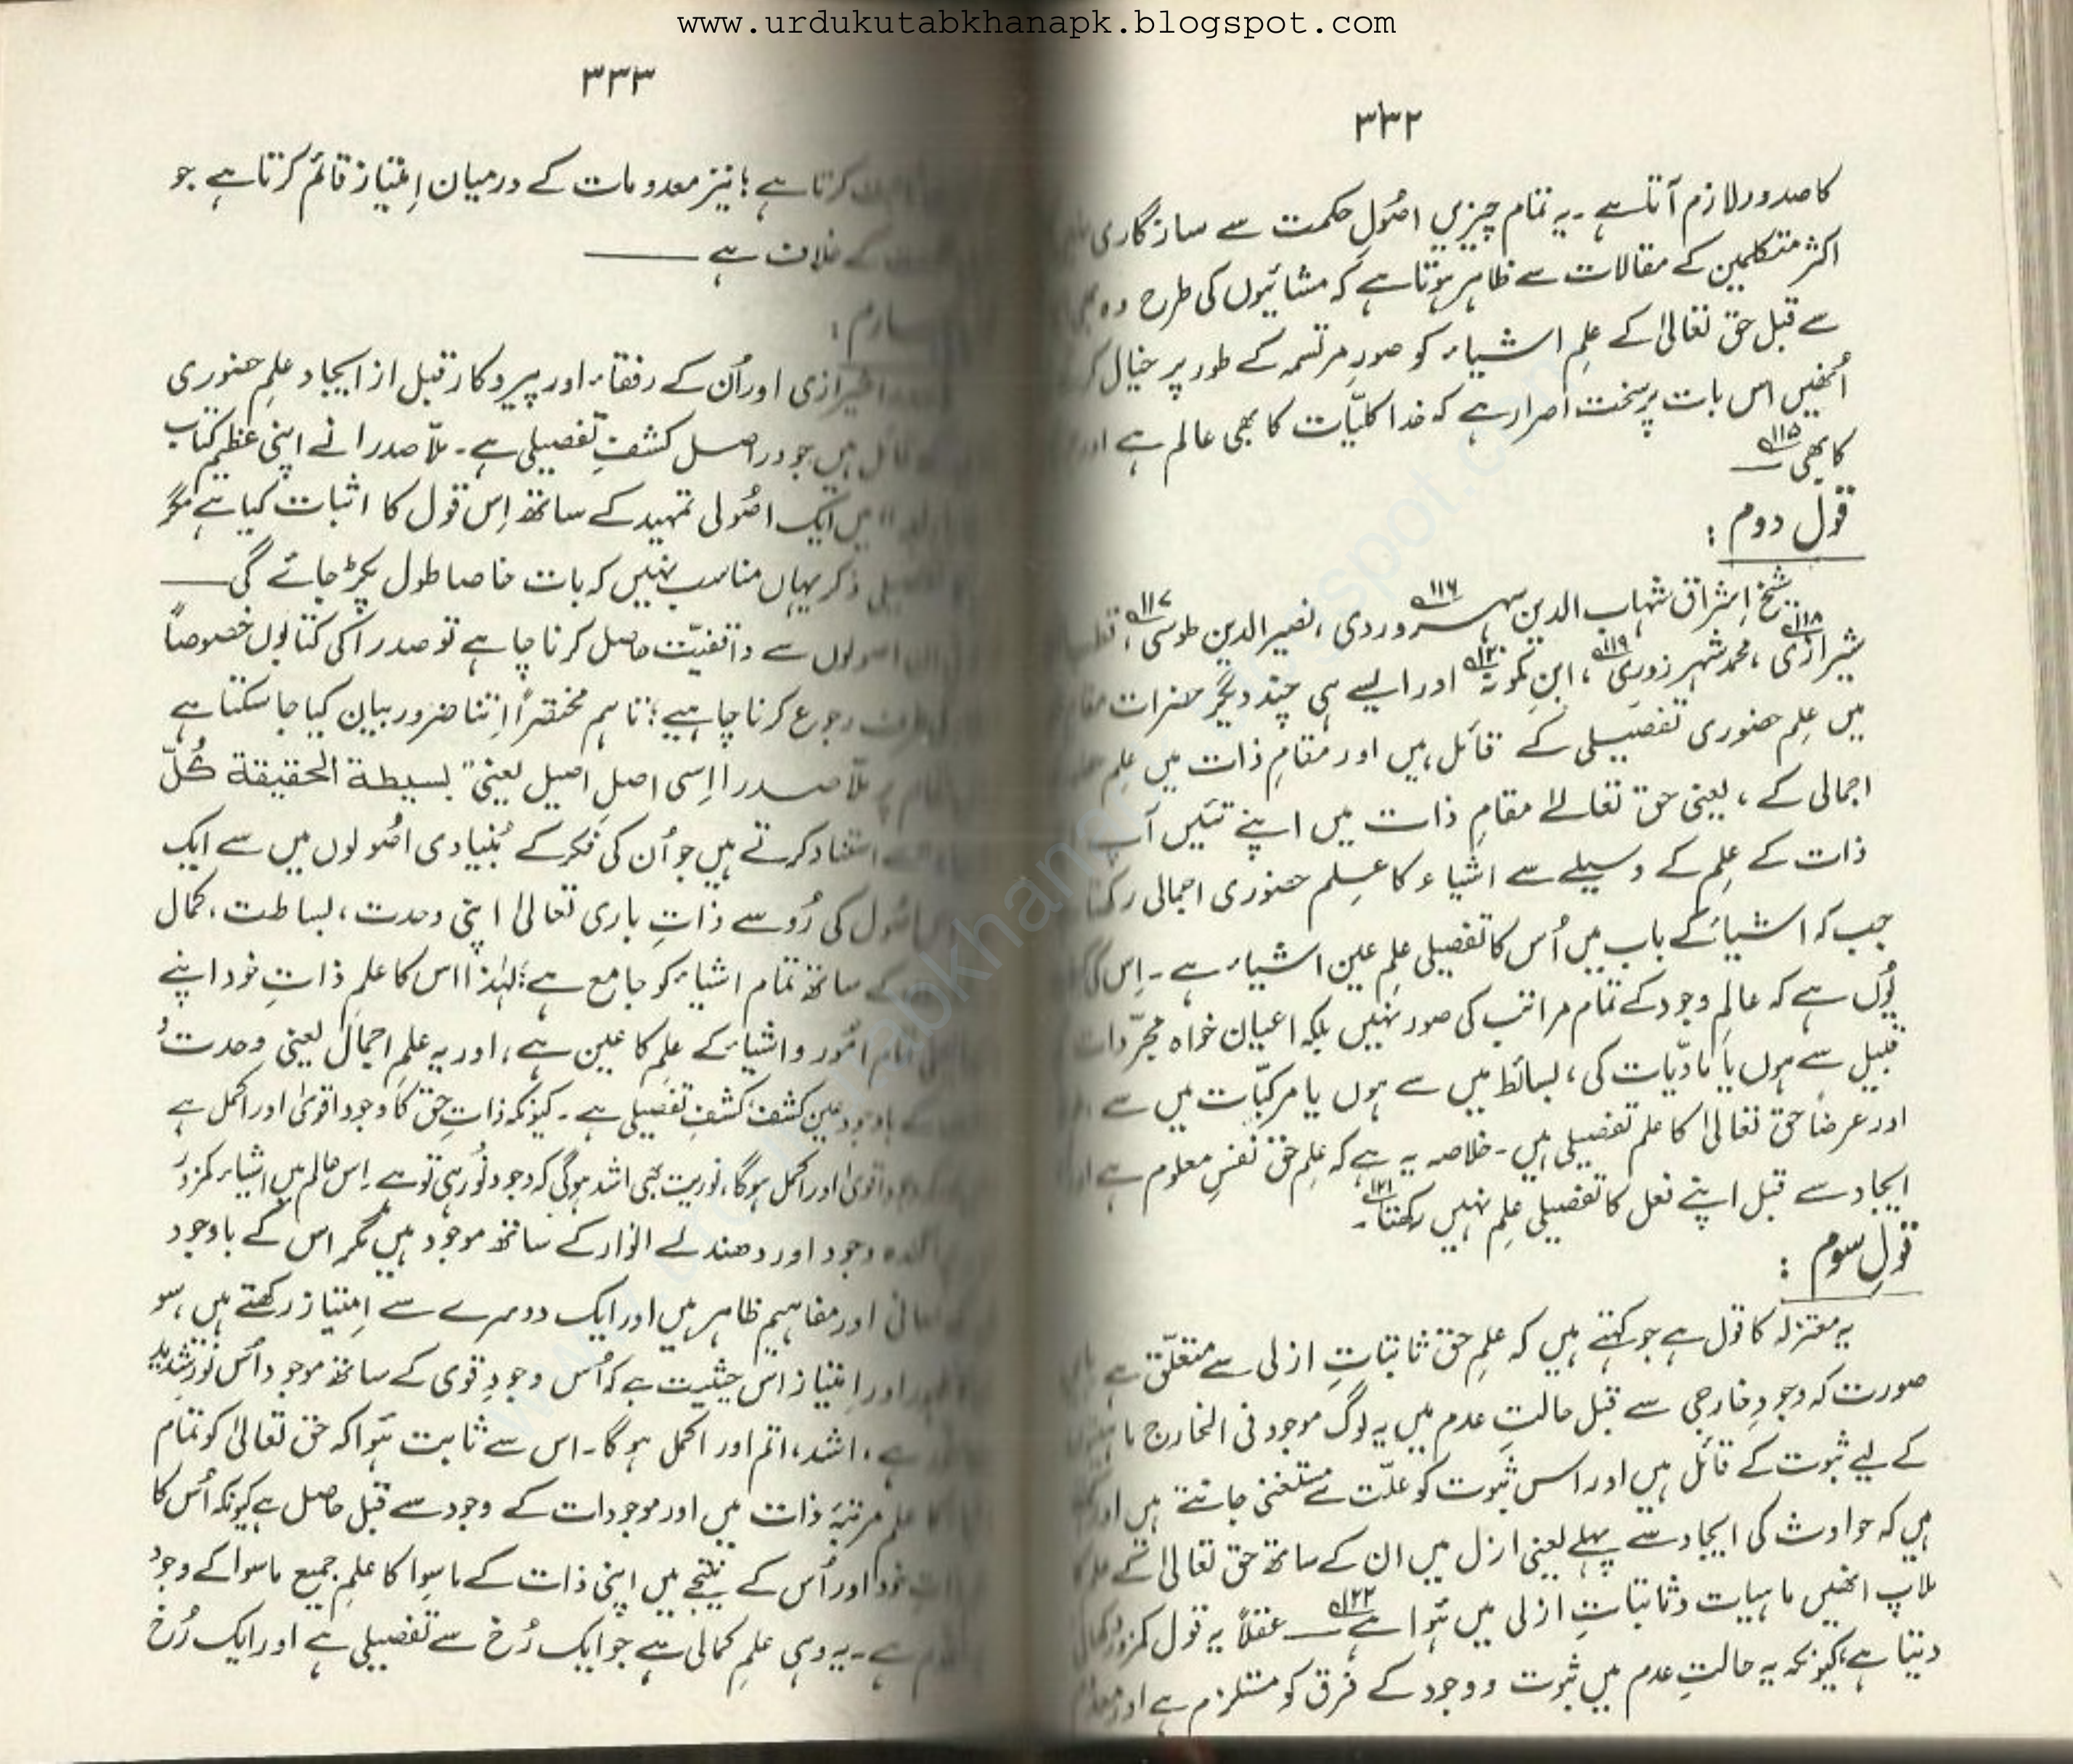 www.urdukutabkhanapk.blogspot.com
۳۳۲
کا صدور لازم آتا ہے۔ یہ تمام چیزیں اصُولِ حکمت سے سازگاری
اکثر متکلمین کے مقالات سے ظاہر ہوتا ہے کہ مشائیوں کی طرح وہ بھی
سے قبل حق تعالیٰ کے علمِ اشیاء کو صورِ مرتسمہ کے طور پر خیال
اُنھیں اس بات پر سخت اصرار ہے کہ خدا کلیّات کا بھی عالم ہے اور
کا بھی ۱۱۵؎
قول دوم :
شیخ اِشراق شہاب الدین سہروردی ۱۱۶؎، نصیر الدین طوسی ۱۱۷؎،
شیرازی ۱۱۸؎، محمد شہر زوری ۱۱۹؎، ابنِ کمّونہ ۱۲۰؎ اور ایسے ہی چند دیگر حضرات
میں علمِ حضوری تفصیلی کے قائل ہیں اور مقامِ ذات میں علمِ
اجمالی کے، یعنی حق تعالےٰ مقامِ ذات میں اپنے تئیں آپ
ذات کے علم کے وسیلے سے اشیاء کا علم حضوری اجمالی رکھتا
جب کہ اشیاء کے باب میں اُس کا تفصیلی علم عین اشیاء ہے۔ اِس کی
یُوں ہے کہ عالمِ وجود کے تمام مراتب کی صور نہیں بلکہ اعیان خواہ مجرّدات
قبیل سے ہوں یا مادّیات کی، بسائط میں سے ہوں یا مرکبّات میں سے،
اور عرضاً حق تعالیٰ کا علم تفصیلی ہیں۔ خلاصہ یہ ہے کہ علمِ حق نفسِ معلوم ہے اور
ایجاد سے قبل اپنے فعل کا تفصیلی علم نہیں رکھتا ۱۲۱؎۔
قولِ سوم :
یہ معتزلہ کا قول ہے جو کہتے ہیں کہ علمِ حق ثابتاتِ ازلی سے متعلّق ہے
صورت کہ وجودِ خارجی سے قبل حالتِ عدم میں یہ لوگ موجود فی الخارج
کے لیے ثبوت کے قائل ہیں اور اس ثبوت کو علّت سے مستغنی جانتے ہیں اور
ہیں کہ حوادث کی ایجاد سے پہلے یعنی ازل میں ان کے ساتھ حق تعالیٰ کے علم کا
ملاپ انھیں ماہیات و ثابتاتِ ازلی میں ہُوا ہے ۱۲۲؎ — عقلاً یہ قول کمزور دکھائی
دیتا ہے، کیونکہ یہ حالتِ عدم میں ثبوت و وجود کے فرق کو مستلزم ہے اور
۳۳۳
کرتا ہے؛ نیز معدومات کے درمیان اِمتیاز قائم کرتا ہے جو
کے خلاف ہے —
شیرازی اور اُن کے رفقاء اور پیروکار قبل از ایجاد علمِ حضوری
قائل ہیں جو دراصل کشفِ تفصیلی ہے۔ ملّا صدرا نے اپنی عظیم کتاب
میں ایک اصُولی تمہید کے ساتھ اِس قول کا اثبات کیا ہے مگر
ذکر یہاں مناسب نہیں کہ بات خاصا طول پکڑ جائے گی —
اصولوں سے واقفیّت حاصل کرنا چاہے تو صدرا کی کتابوں خصوصاً
رجوع کرنا چاہیے؛ تاہم مختصراً اِتنا ضرور بیان کیا جاسکتا ہے
پر ملّا صدرا اِسی اصلِ اصیل یعنی "بسیطة الحقیقة کُلّ
سے استناد کرتے ہیں جو اُن کی فکر کے بُنیادی اصُولوں میں سے ایک
اصُول کی رُو سے ذاتِ باری تعالیٰ اپنی وحدت، بساطت، کمال
کے ساتھ تمام اشیاء کو جامع ہے؛ لہٰذا اس کا علمِ ذاتِ خود اپنے
تمام امُور و اشیاء کے علم کا عین ہے، اور یہ علمِ اجمال یعنی وحدت
کے باوجود عین کشف، کشفِ تفصیلی ہے۔ کیونکہ ذاتِ حق کا وجود اقویٰ اور اکمل ہے
وجود اقویٰ اور اکمل ہوگا، نوریت بھی اشد ہوگی کہ وجود نُور ہی تو ہے۔ اِس عالم میں اشیاء کمزور
وجود اور دھندلے انوار کے ساتھ موجود ہیں مگر اس کے باوجود
معانی اور مفاہیم ظاہر ہیں اور ایک دوسرے سے اِمتیاز رکھتے ہیں، سو
اور اِمتیاز اس حیثیت سے کہ اُس وجودِ قوی کے ساتھ موجود اُس نورِ شدید
ہے، اشد، اتم اور اکمل ہوگا۔ اس سے ثابت ہُوا کہ حق تعالیٰ کو تمام
کا علم مرتبۂ ذات میں اور موجودات کے وجود سے قبل حاصل ہے کیونکہ اُس کا
خود اور اُس کے نتیجے میں اپنی ذات کے ماسوا کا علمِ جمیع ماسوا کے وجود
ہے۔ یہ وہی علمِ کمالی ہے جو ایک رُخ سے تفصیلی ہے اور ایک رُخ